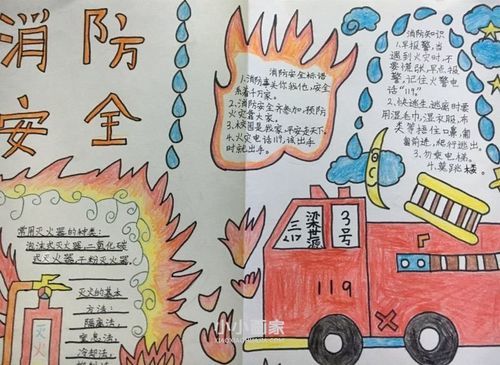 消防
安全
消防安全标语
1.消防事关你我他,安全
系着千万家。
2.消防安全齐参加,预防
火灾靠大家。
4.火灾电话119,该出手
时就出手。
消防知识
1.早报警,当
遇到火灾时,不
要慌张,早点报
警,记住火警电
话"119。"
2.快逃生,逃离时要
用湿毛巾,湿衣服,布
类等捂住口鼻,匍
匐前进,爬行逃出。
3.勿乘电梯。
4.莫跳楼。
常用灭火器的种类:
泡沫式灭火器,二氧化碳
式灭火器,干粉灭火器.
灭火的基本
方法:
隔离法,
窒息法,
冷却法,
灭火
3号
119
小小画家